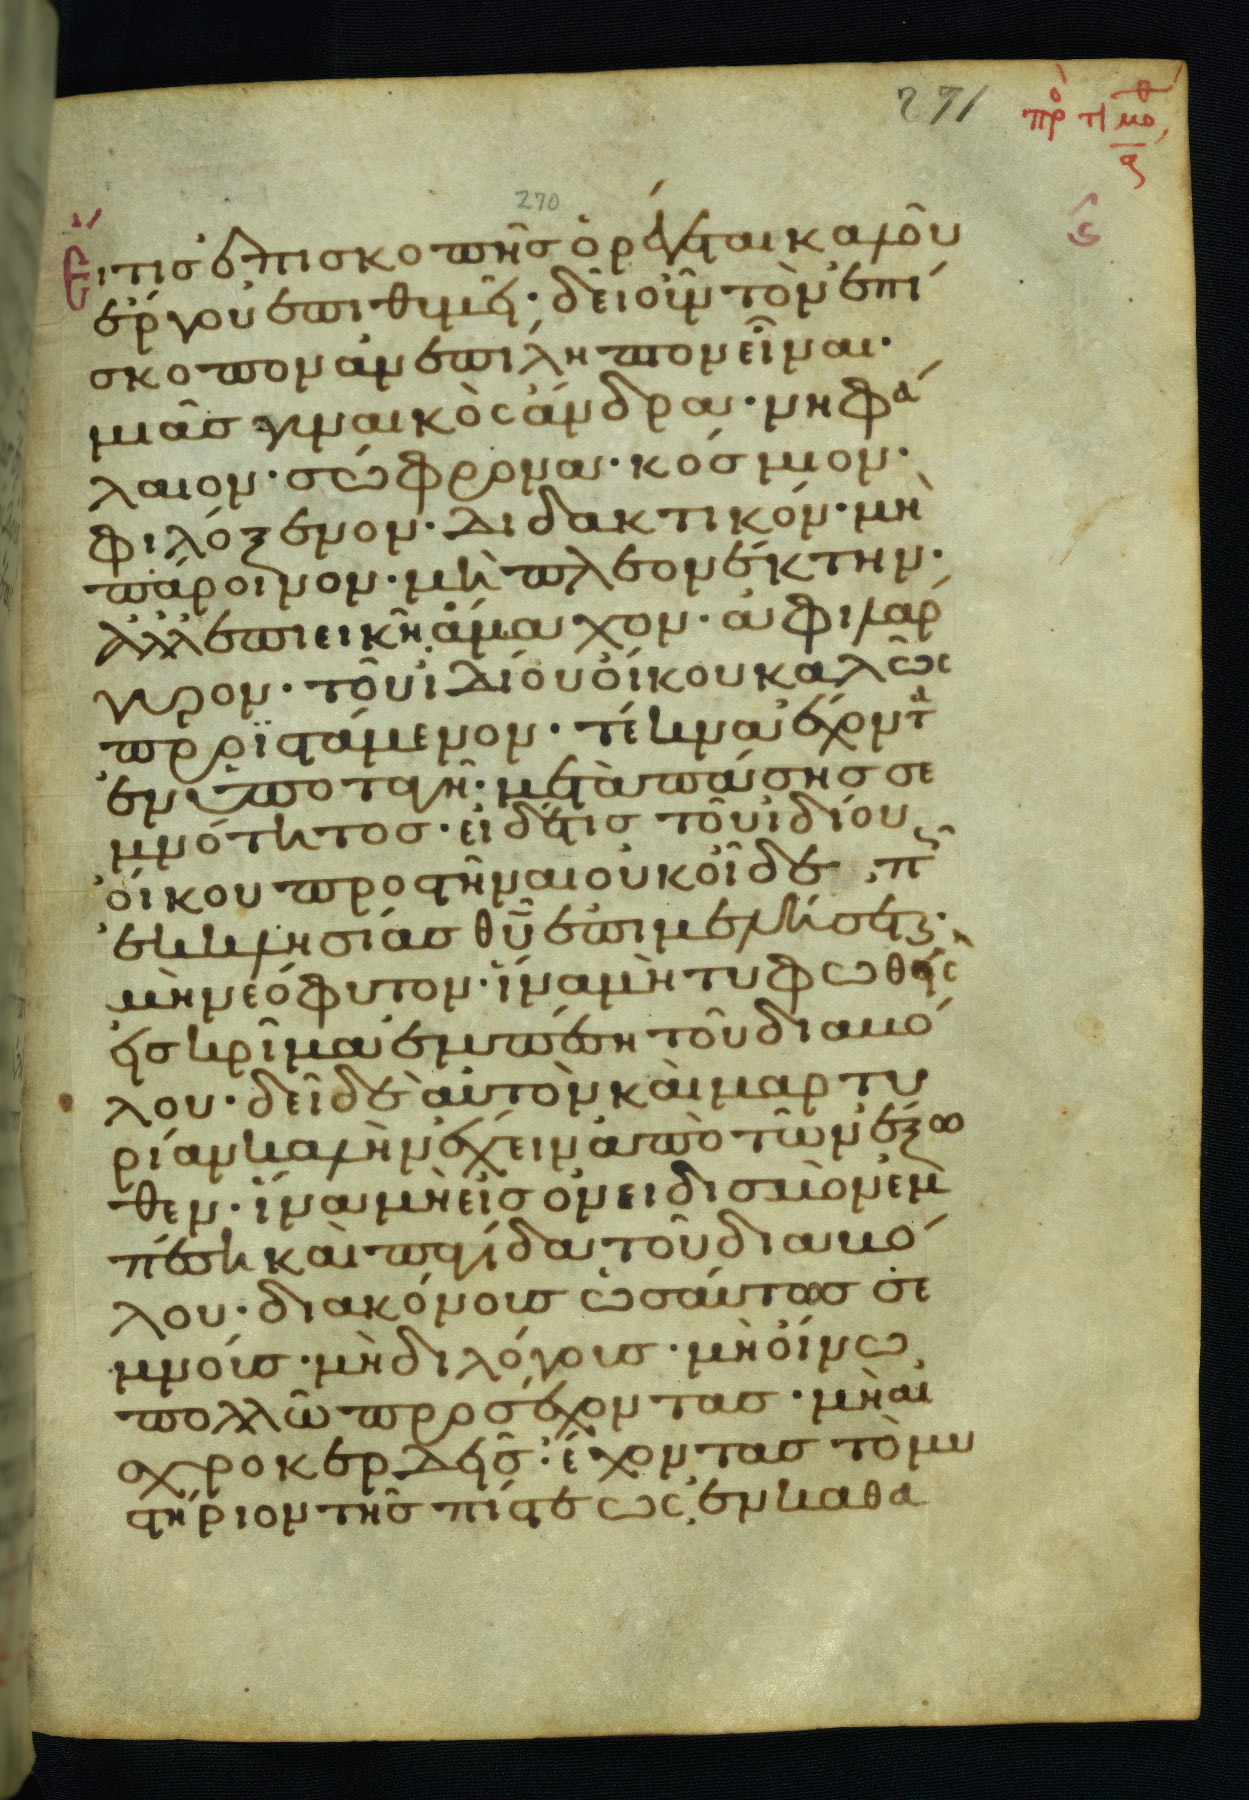 271
πρὸ τι μο
α
270
ε
Εἴ τις ἐπισκοπῆς ὀρέγεται καλοῦ
ἔργου ἐπιθυμεῖ· δεῖ οὖν τὸν ἐπί
σκοπον ἀνεπίληπτον εἶναι·
μιᾶς γυναικὸς ἄνδρα· νηφά
λαιον· σώφρονα· κόσμιον·
φιλόξενον· διδακτικόν· μὴ
πάροινον· μὴ πλεονέκτην·
ἀλλ ἐπιεικῆ ἄμαχον· ἀφιλάρ
γυρον· τοῦ ἰδίου οἴκου καλῶς
προϊστάμενον· τέκνα ἔχοντα
ἐν ὑποταγῆ· μετὰ πάσης σε
μνότητος· εἰ δέ τις τοῦ ἰδίου
οἴκου προστῆναι οὐκ οἶδε, π
ἐκκλησίας θῦ ἐπιμελήσεται·
μὴ νεόφυτον· ἵνα μὴ τυφωθεὶς
εἰς κρῖμα ἐμπέση τοῦ διαβό
λου· δεῖ δὲ αὐτὸν καὶ μαρτυ
ρίαν καλὴν ἔχειν ἀπὸ τῶν ἔξω
θεν· ἵνα μὴ εἰς ὀνειδισμὸν ἐμ
πέση καὶ παγίδα τοῦ διαβό
λου· διακόνους ὡσαύτως σε
μνούς· μὴ διλόγους· μὴ οἴνω
πολλῶ προσέχοντας· μὴ αἰ
σχροκερδεῖς· ἔχοντας τὸ μυ
στήριον τῆς πίστεως, ἐν καθα